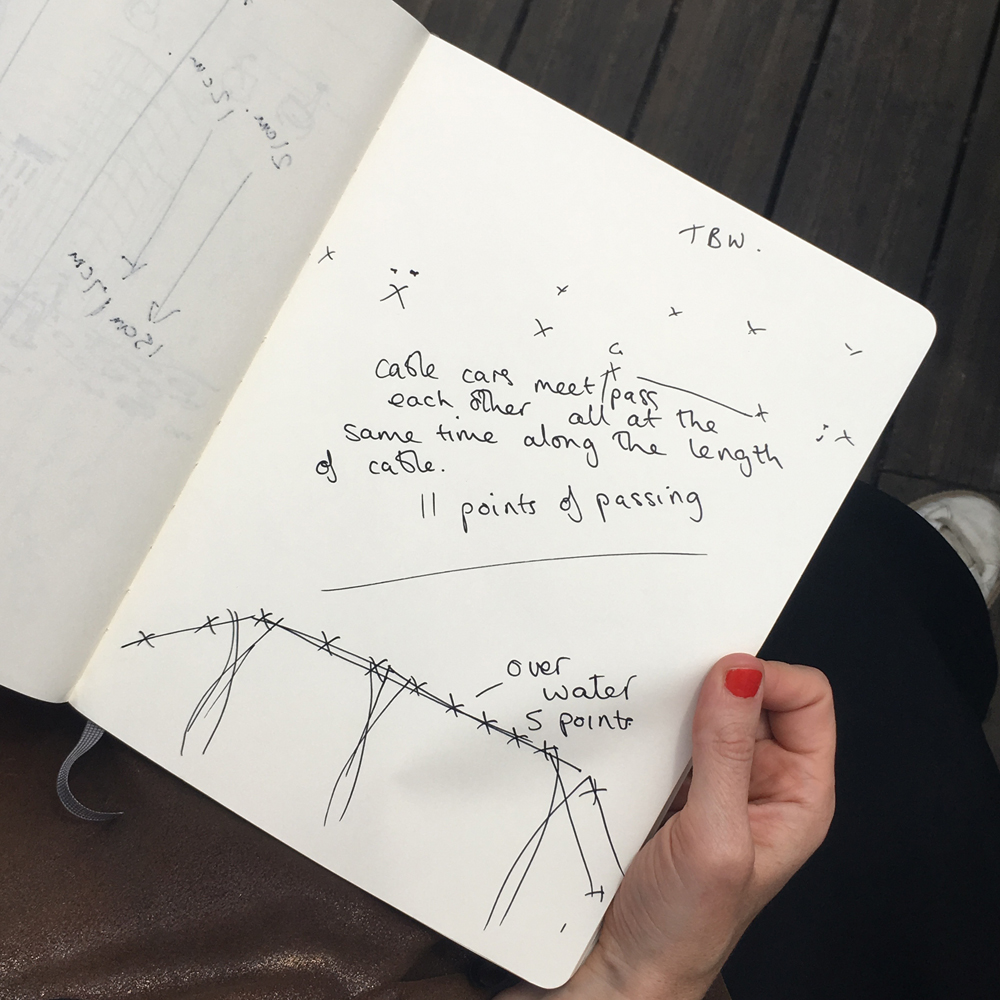 TBW.
cable cars meet/pass
each other all at the
same time along the length
of cable.
11 points of passing
over
water
5 points
21cm. 12cm
15cm 17cm